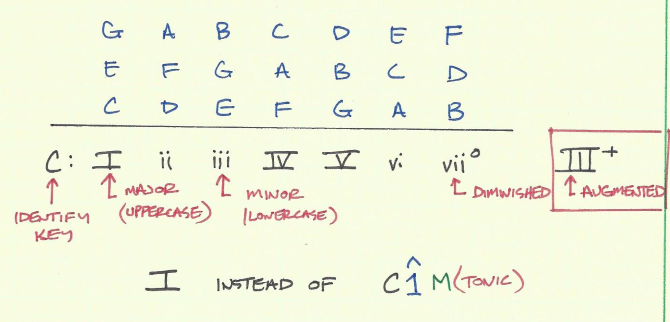 G A B C D E F
E F G A B C D
C D E F G A B
C: I ii iii IV V vi vii° III+
IDENTIFY KEY
MAJOR (UPPERCASE)
MINOR (LOWERCASE)
DIMINISHED
AUGMENTED
I INSTEAD OF C 1̂ M (TONIC)